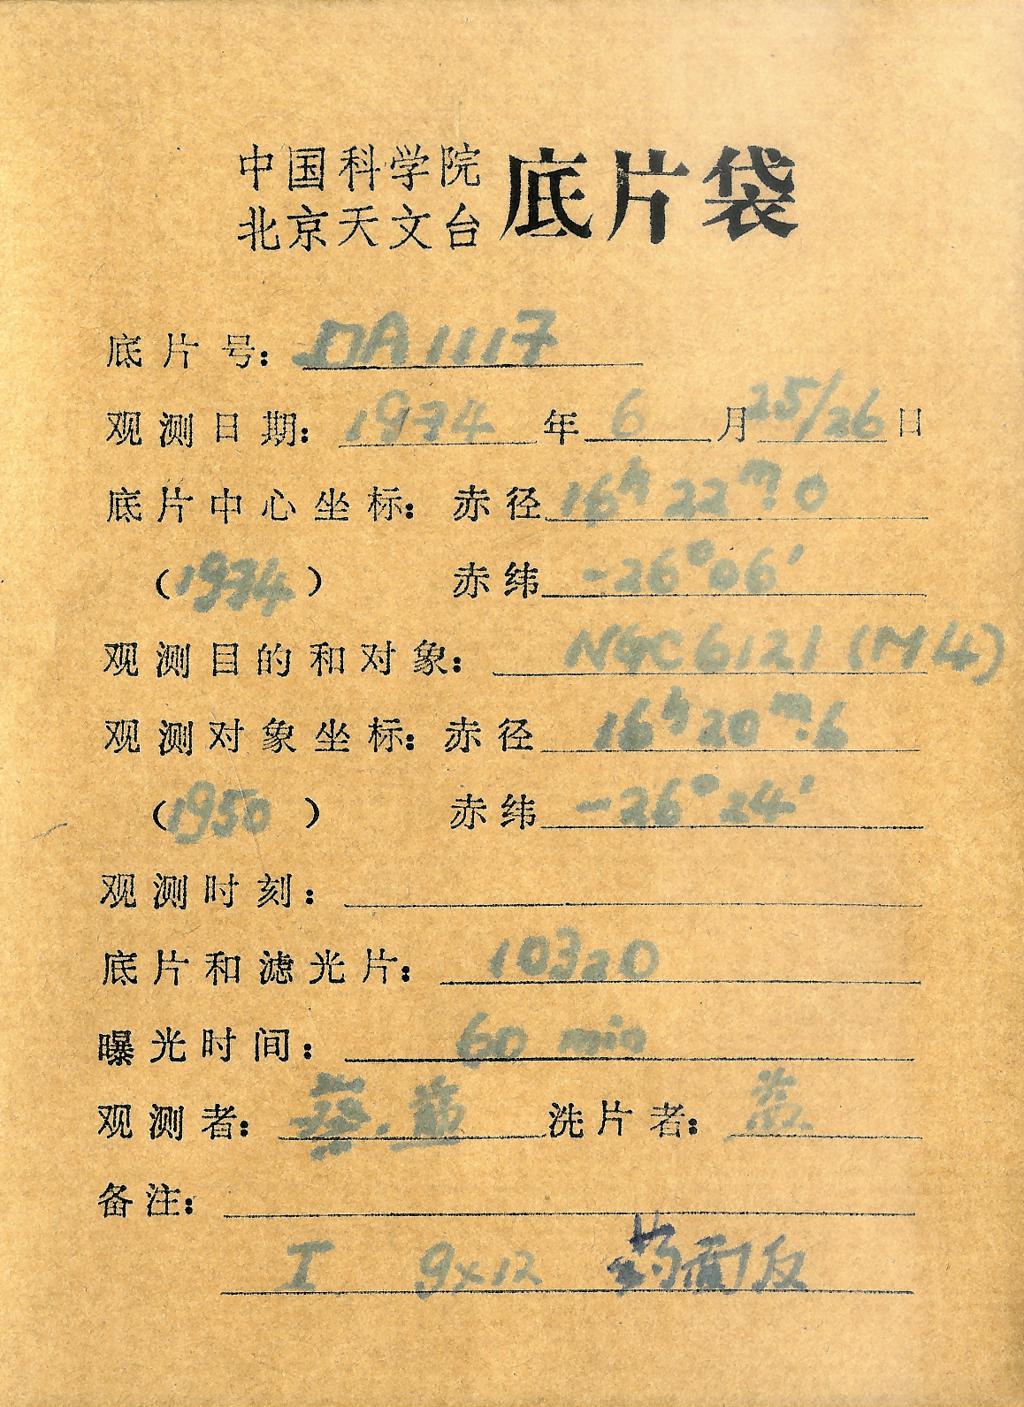 中国科学院
北京天文台 底片袋
底片号: DA1117
观测日期: 1974 年 6 月 25/26 日
底片中心坐标: 赤径 16h 22m.0
(1974) 赤纬 -26°06'
观测目的和对象: NGC6121 (M4)
观测对象坐标: 赤径 16h 20m.6
(1950) 赤纬 -26°24'
观测时刻:
底片和滤光片: 10320
曝光时间: 60 min
观测者: 蔡. 洗片者:
备注:
I 9x12 药面反